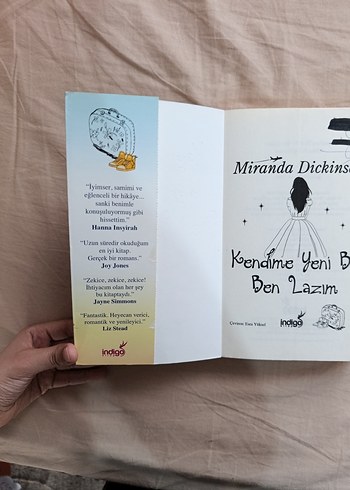 "İyimser, samimi ve
eğlenceli bir hikâye...
sanki benimle
konuşuluyormuş gibi
hissettim."
Hanna Insyirah
"Uzun süredir okuduğum
en iyi kitap.
Gerçek bir romans."
Joy Jones
"Zekice, zekice, zekice!
İhtiyacım olan her şey
bu kitaptaydı."
Jayne Simmons
"Fantastik. Heyecan verici,
romantik ve yenileyici."
Liz Stead
indigo
Miranda Dickins
Kendime Yeni B
Ben Lazım
Çeviren: Esra Yüksel
indigo